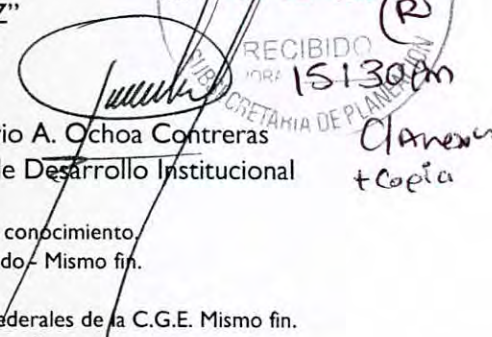 Z"
R
RECIBIDO
HORA 15:30pm
SUBSECRETARIA DE PLANEACIÓN
rio A. Ochoa Contreras
C/Anexos
de Desarrollo Institucional
+ Copia
conocimiento.
do.- Mismo fin.
ederales de la C.G.E. Mismo fin.